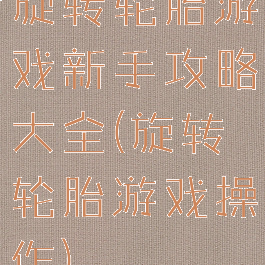 旋转轮胎游
戏新手攻略
大全(旋转
轮胎游戏操
作)